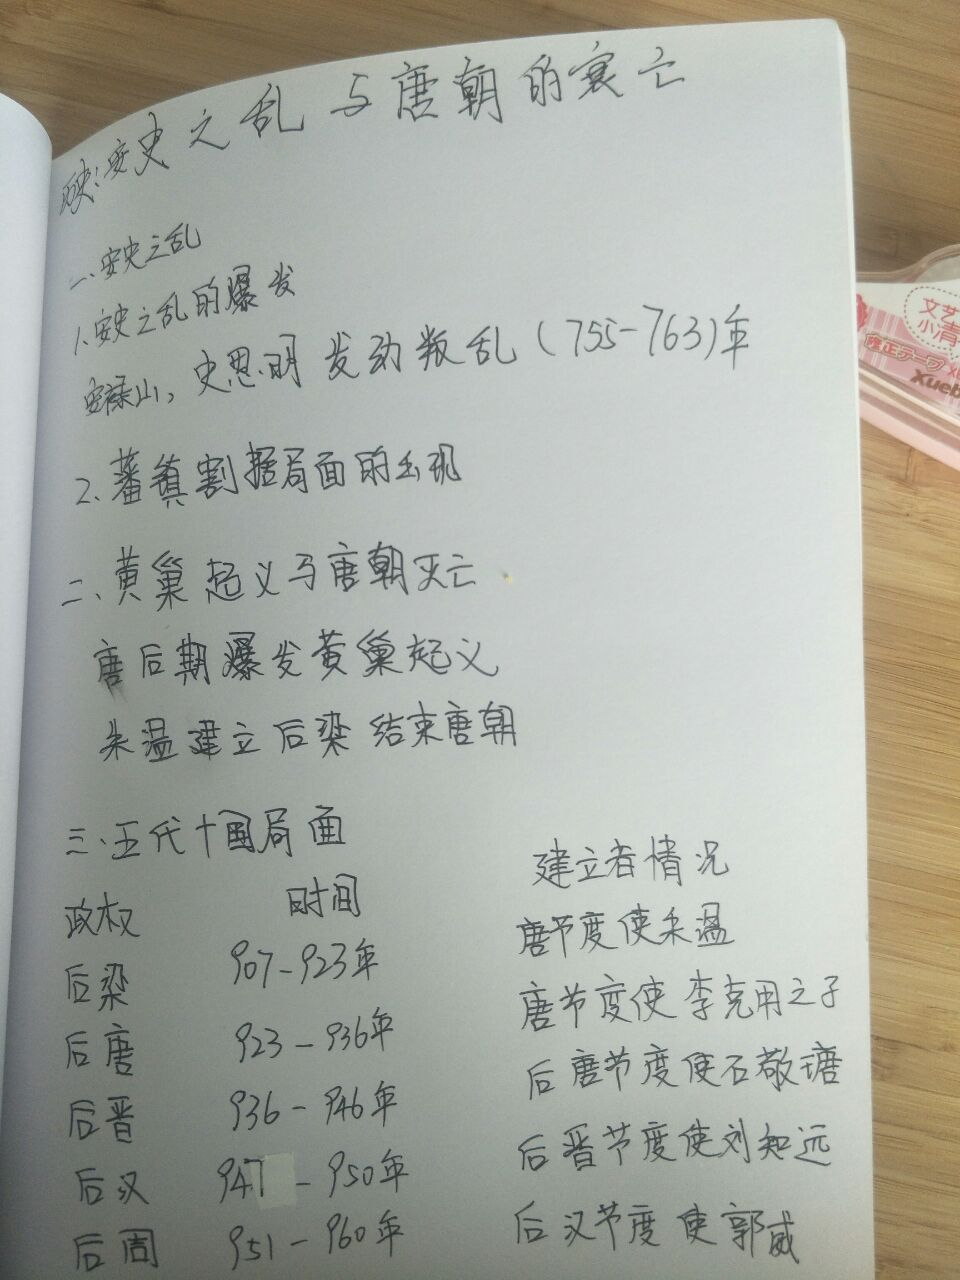 历史:安史之乱与唐朝的衰亡
一、安史之乱
1、安史之乱的爆发
安禄山,史思明发动叛乱(755-763)年
2、藩镇割据局面的出现
二、黄巢起义与唐朝灭亡
唐后期爆发黄巢起义
朱温建立后梁结束唐朝
三、五代十国局面
政权 时间 建立者情况
后梁 907-923年 唐节度使朱温
后唐 923-936年 唐节度使李克用之子
后晋 936-946年 后唐节度使石敬瑭
后汉 947-950年 后晋节度使刘知远
后周 951-960年 后汉节度使郭威
文艺
小清
修正テープ
Xueb